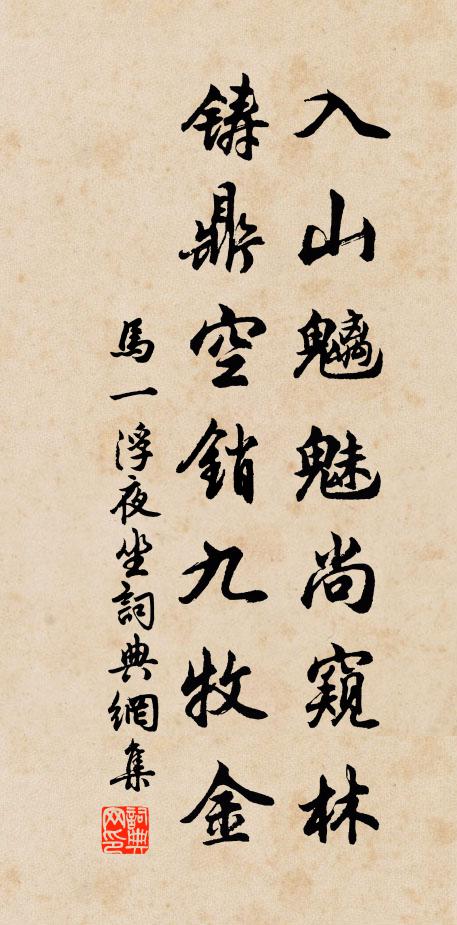 入山魑魅尚窺林
鑄鼎空銷九牧金
馬一浮夜坐詞典網集
詞典网印